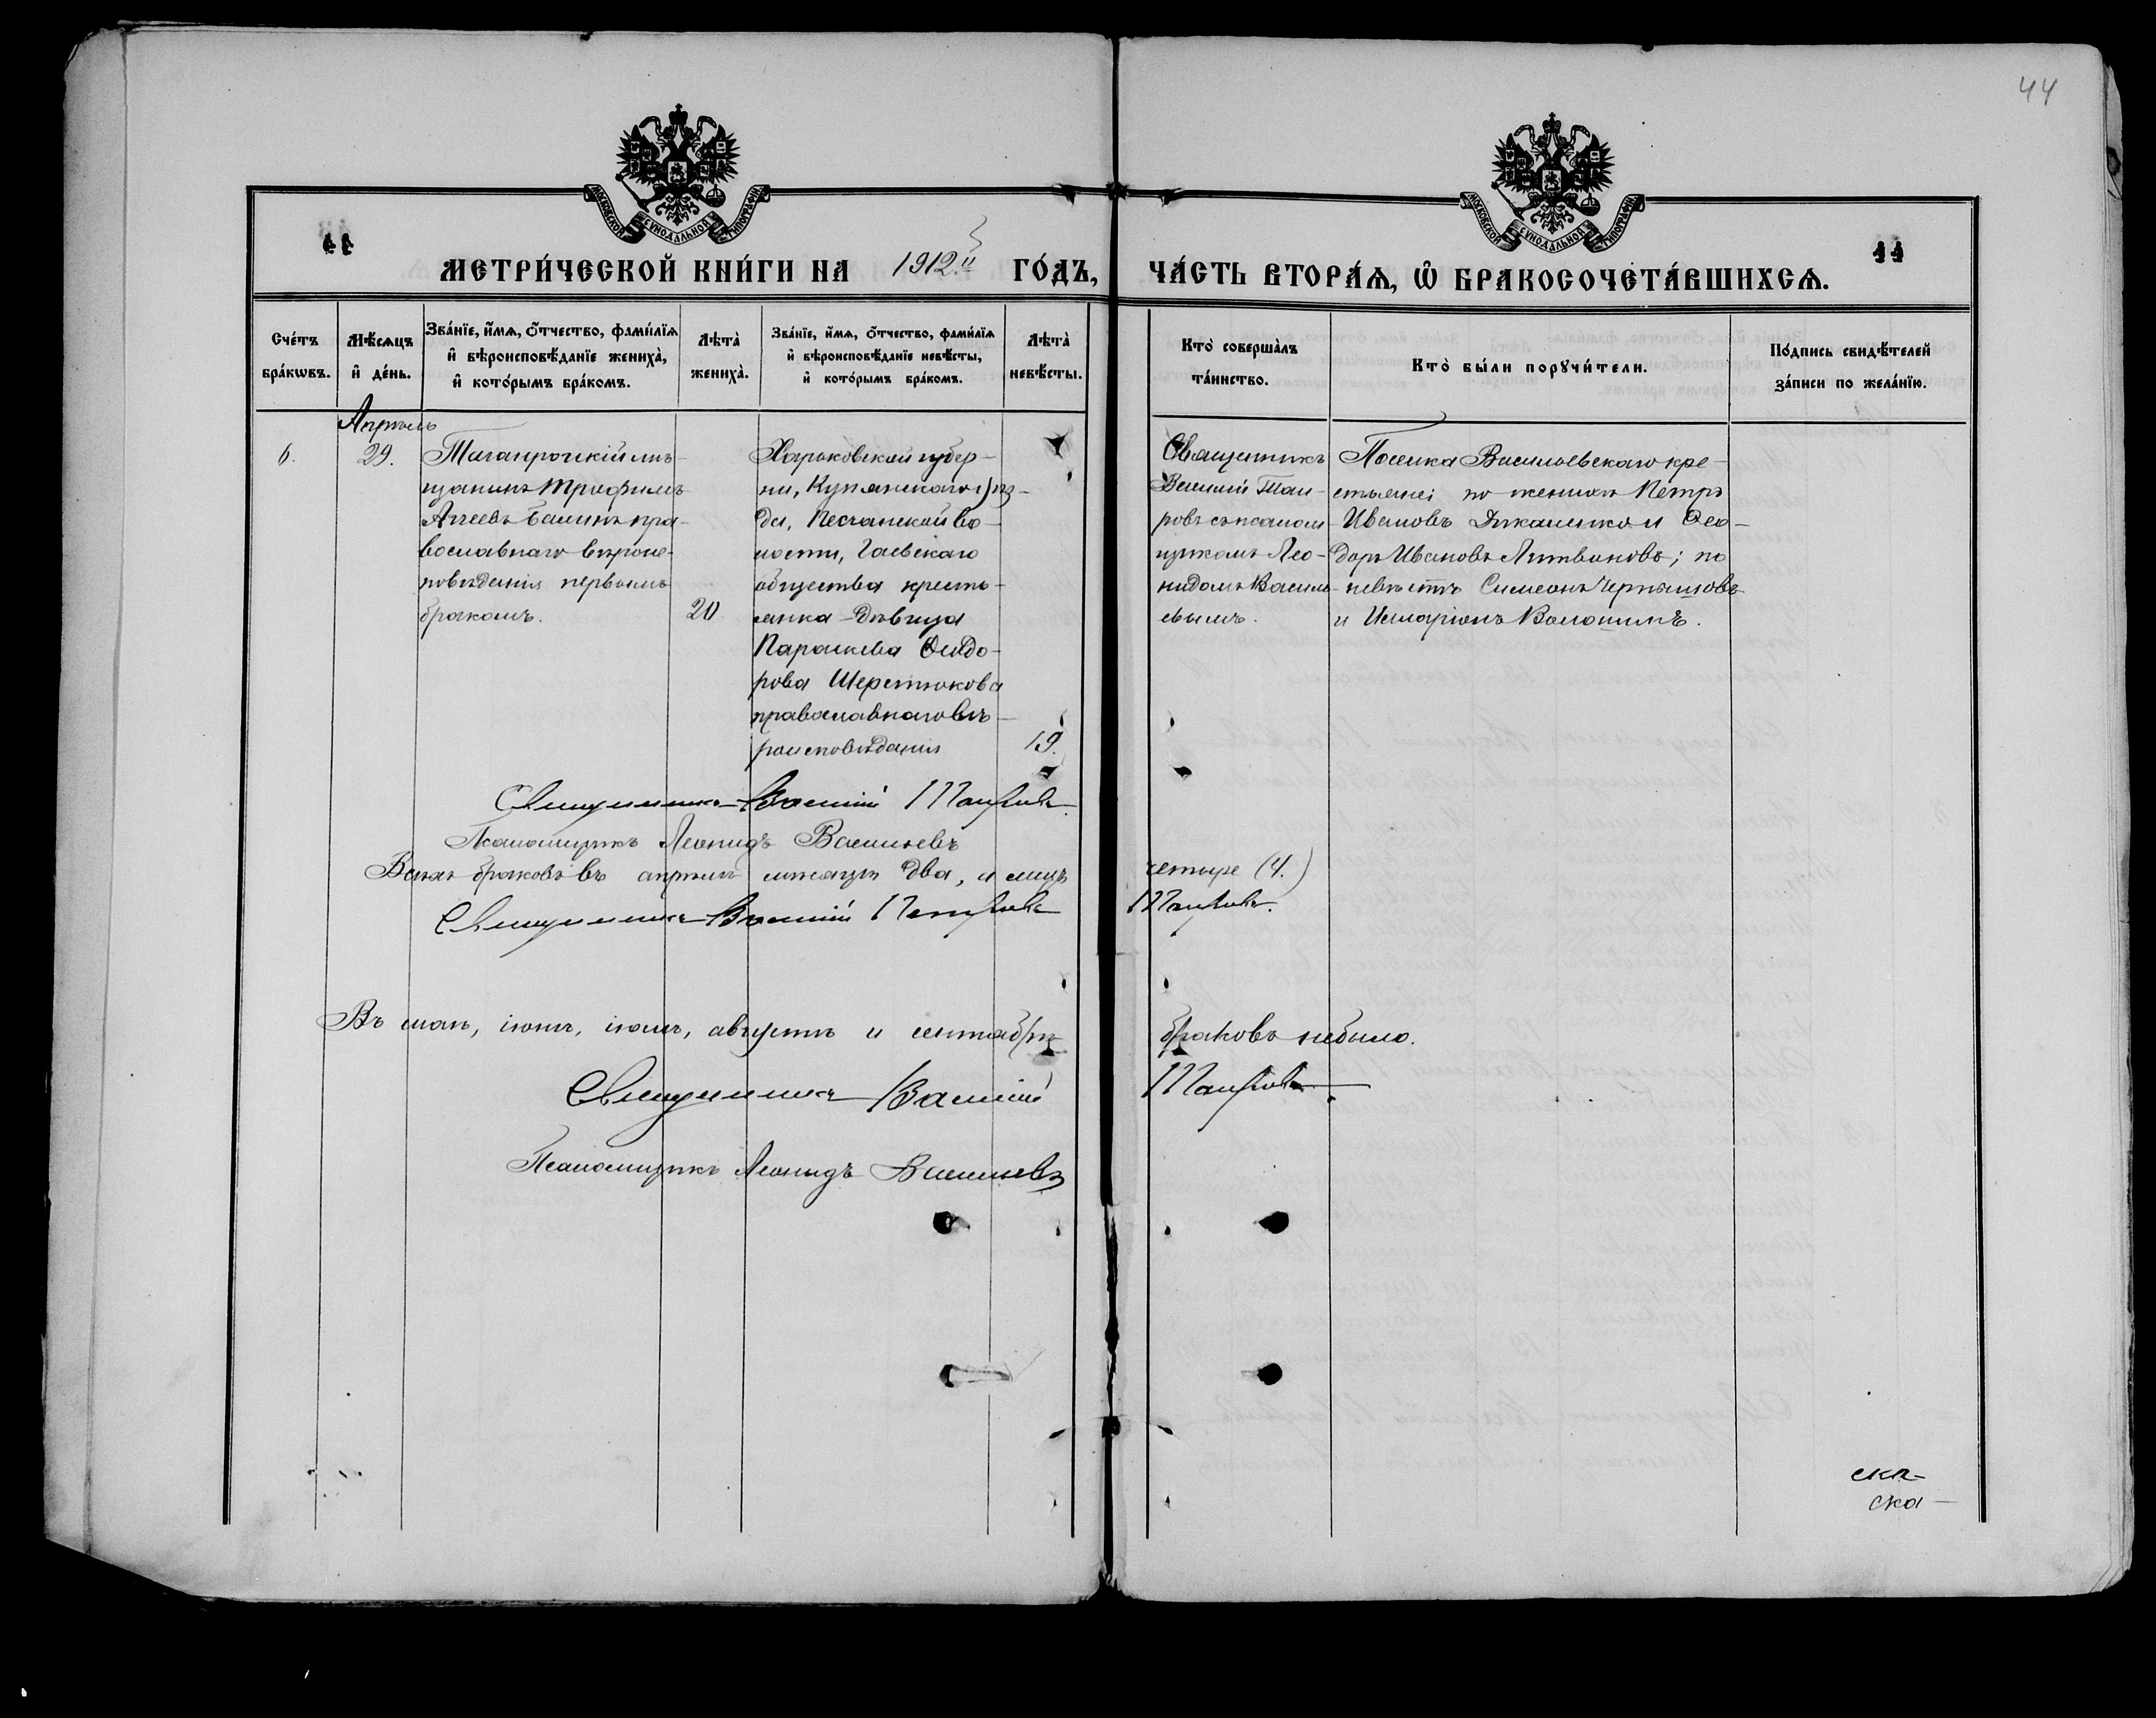 44
МОСКОВСКОЙ СУНОДАЛЬНОЙ ТИПОГРАФІИ
МОСКОВСКОЙ СУНОДАЛЬНОЙ ТИПОГРАФІИ
11
11
МЕТРИ́ЧЕСКОЙ КНИ́ГИ НА 1912 й ГО́ДЪ, ЧА́СТЬ ВТОРА́Ѧ, Ѽ БРАКОСОЧЕТА́ВШИХСѦ.
Сче́тъ
бра́кѡвъ.
Мѣ́сѧцъ
и҆ де́нь.
Зва́нїе, и҆́мѧ, ѻ҆́тчество, фами́лїѧ
и҆ вѣроисповѣ́данїе жениха̀,
и҆ кото́рымъ бра́комъ.
Лѣта̀
жениха̀.
Зва́нїе, и҆́мѧ, ѻ҆́тчество, фами́лїѧ
и҆ вѣроисповѣ́данїе невѣ́сты,
и҆ кото́рымъ бра́комъ.
Лѣта̀
невѣ́сты.
Кто̀ соверша̀лъ
та́инство.
Кто̀ бы́ли порꙋчи́тели.
По́дпись свидѣ́телей
за́писи по жела́нїю.
Апрѣль
6.
29.
Таганрогскій мѣ-
щанинъ Трофимъ
православнаго вѣроис-
повѣданія первымъ
бракомъ.
20
Харьковской губер-
ніи, Купянскаго уѣз-
да, Песчанской во-
лости, Гаевскаго
общества кресть-
янка-дѣвица
Параскева Ѳеодо-
рова Шерстюкова
православнаго вѣ-
роисповѣданія
19.
Священникъ
Василій
ровъ съ псалом-
щикомъ Лео-
нидомъ Василь-
евымъ.
Поселка Васильевскаго кре-
стьяне: по женихѣ Петръ
Ивановъ Дикаленко и Ѳео-
доръ Ивановъ Литвиновъ; по
невѣстѣ Симеонъ Чернышовъ
и Иларіонъ Волошинъ.
Священникъ Василій
Псаломщикъ Леонидъ Васильевъ
Всѣхъ браковъ въ апрѣлѣ мѣсяцѣ два, а лицъ четыре (4.)
Священникъ Василій
Въ маѣ, іюнѣ, іюлѣ, августѣ и сентябрѣ браковъ небыло.
Священникъ Василій
Псаломщикъ Леонидъ Васильевъ
ска-